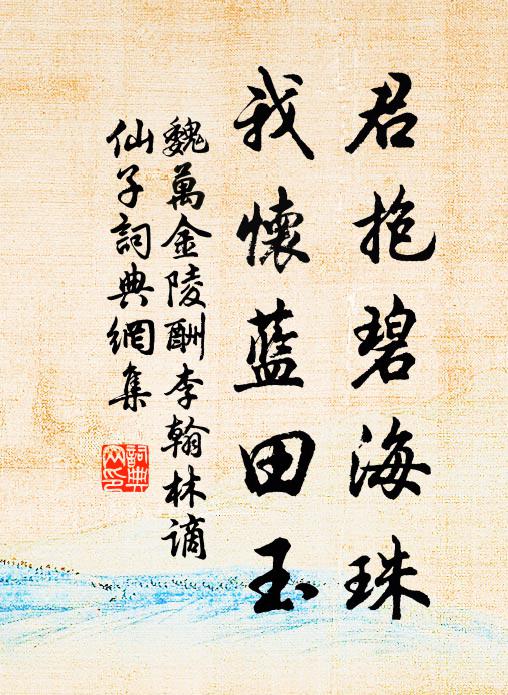 君抱碧海珠
我懷藍田玉
魏萬金陵酬李翰林謫
仙子詞典網集
詞典
网印